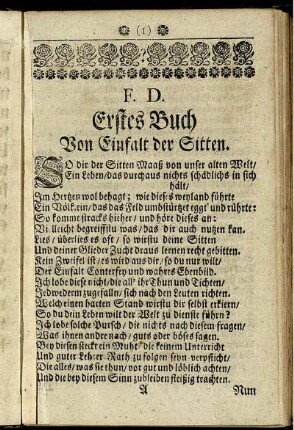 (1)
F. D.
Erstes Buch
Von Einfalt der Sitten.
SO dir der Sitten Maaß von unser alten Welt/
Ein Leben/das durchaus nichts schädlichs in sich
hält/
Im Hertzen wol behagt; wie dieß weyland führte
Ein Volk ein/ das das Feld umbstürtzet egge' und rührte:
So komme stracks hieher/ und höre dieses an:
Vielleicht begreiffstu was/ das dir auch nutzen kan.
Lies/ überlies es oft/ so wirstu deine Sitten
Und deiner Glieder Zucht daraus lernen recht gebitten.
Kein Zweifel ist/ es wird aus dir/ so du nur wilt/
Der Einfalt Conterfey und wahres Ebenbild.
Ich lobe diese nicht/ die all' ihr Thun und Tichten/
Jedwederm zugefalln/ sich nach den Leuten richten.
Welch einen harten Stand wirstu dir selbst erkiern/
So du dein Leben wilt der Welt zu dienste führn?
Ich lobe solche Pursch/ die nichts nach diesem fragen/
Was ihnen andre nach/ guts oder böses sagen.
Bey diesen steckt ein Muht/ die keinem Unterricht
Und guter Lehrer Raht zu folgen seyn verpflicht/
Die alles/ was sie thun/ vor gut und löblich achten/
Und die bey diesem Sinn zubleiben fleißig trachten.
A
Nun